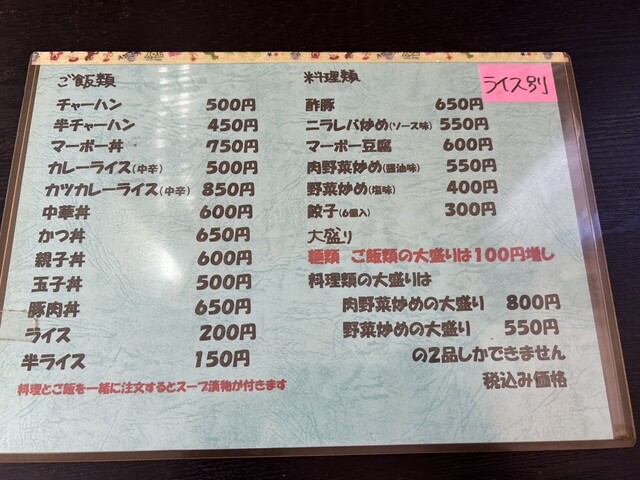 ご飯類
チャーハン 500円
半チャーハン 450円
マーボー丼 750円
カレーライス(中辛) 500円
カツカレーライス(中辛) 850円
中華丼 600円
かつ丼 650円
親子丼 600円
玉子丼 500円
豚肉丼 650円
ライス 200円
半ライス 150円
料理とご飯を一緒に注文するとスープ漬物が付きます
料理類
ライス別
酢豚 650円
ニラレバ炒め(ソース味) 550円
マーボー豆腐 600円
肉野菜炒め(醤油味) 550円
野菜炒め(塩味) 400円
餃子(6個入) 300円
大盛り
麺類 ご飯類の大盛りは100円増し
料理類の大盛りは
肉野菜炒めの大盛り 800円
野菜炒めの大盛り 550円
の2品しかできません
税込み価格